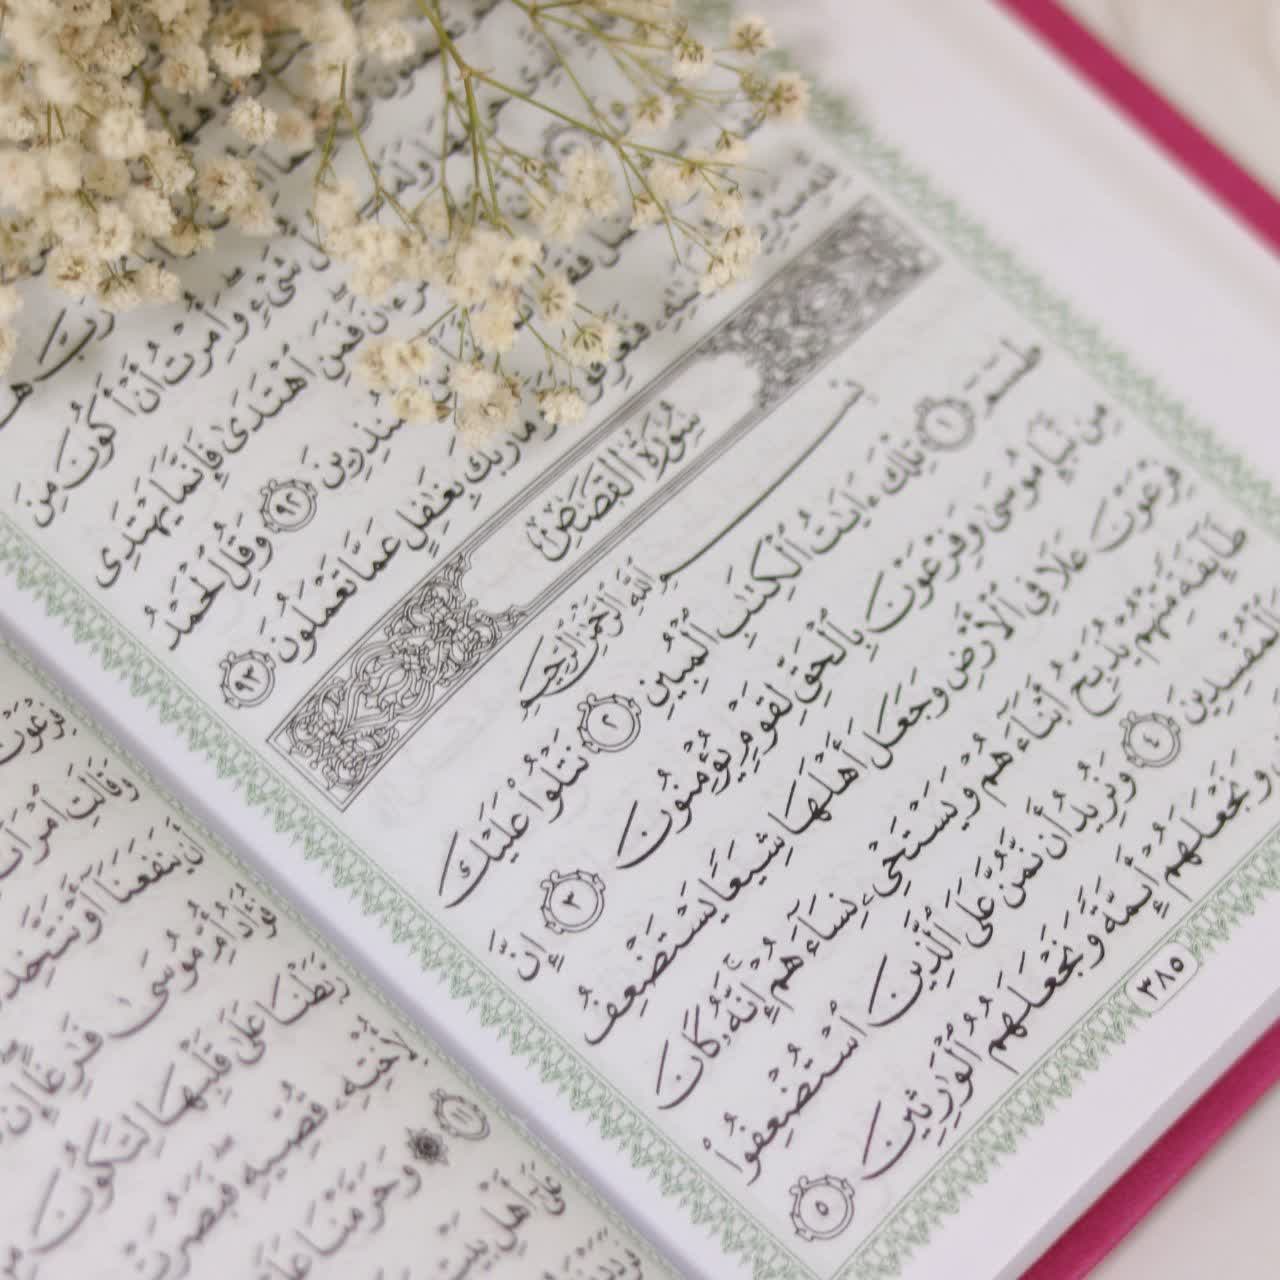 رَبَّ هَـ
شَىْءٍ وَأُمِرْتُ أَنْ أَكُونَ مِنَ
فَمَنِ ٱهْتَدَىٰ فَإِنَّمَا يَهْتَدِى
ٱلْمُنذِرِينَ ٩٢ وَقُلِ ٱلْحَمْدُ
فَتَعْرِفُونَهَا وَمَا رَبُّكَ بِغَـٰفِلٍ عَمَّا تَعْمَلُونَ ٩٣
سُورَةُ القَصَصِ
بِسْمِ ٱللَّهِ ٱلرَّحْمَـٰنِ ٱلرَّحِيمِ
طسٓمٓ ١ تِلْكَ ءَايَـٰتُ ٱلْكِتَـٰبِ ٱلْمُبِينِ ٢ نَتْلُوا۟ عَلَيْكَ
مِن نَّبَإِ مُوسَىٰ وَفِرْعَوْنَ بِٱلْحَقِّ لِقَوْمٍ يُؤْمِنُونَ ٣ إِنَّ
فِرْعَوْنَ عَلَا فِى ٱلْأَرْضِ وَجَعَلَ أَهْلَهَا شِيَعًا يَسْتَضْعِفُ
طَآئِفَةً مِّنْهُمْ يُذَبِّحُ أَبْنَآءَهُمْ وَيَسْتَحْىِۦ نِسَآءَهُمْ إِنَّهُۥ كَانَ
ٱلْمُفْسِدِينَ ٤ وَنُرِيدُ أَن نَّمُنَّ عَلَى ٱلَّذِينَ ٱسْتُضْعِفُوا۟
وَنَجْعَلَهُمْ أَئِمَّةً وَنَجْعَلَهُمُ ٱلْوَٰرِثِينَ ٥
٣٨٥
وَقَالَتِ ٱمْرَأَتُ
أَن يَنفَعَنَآ أَوْ نَتَّخِذَ
فُؤَادُ أُمِّ مُوسَىٰ فَـٰرِغًا إِن
رَّبَطْنَا عَلَىٰ قَلْبِهَا لِتَكُونَ مِنَ
لِأُخْتِهِۦ قُصِّيهِ فَبَصُرَتْ
١١ وَحَرَّمْنَا عَلَيْهِ
عَلَىٰٓ أَهْلِ بَيْتٍ